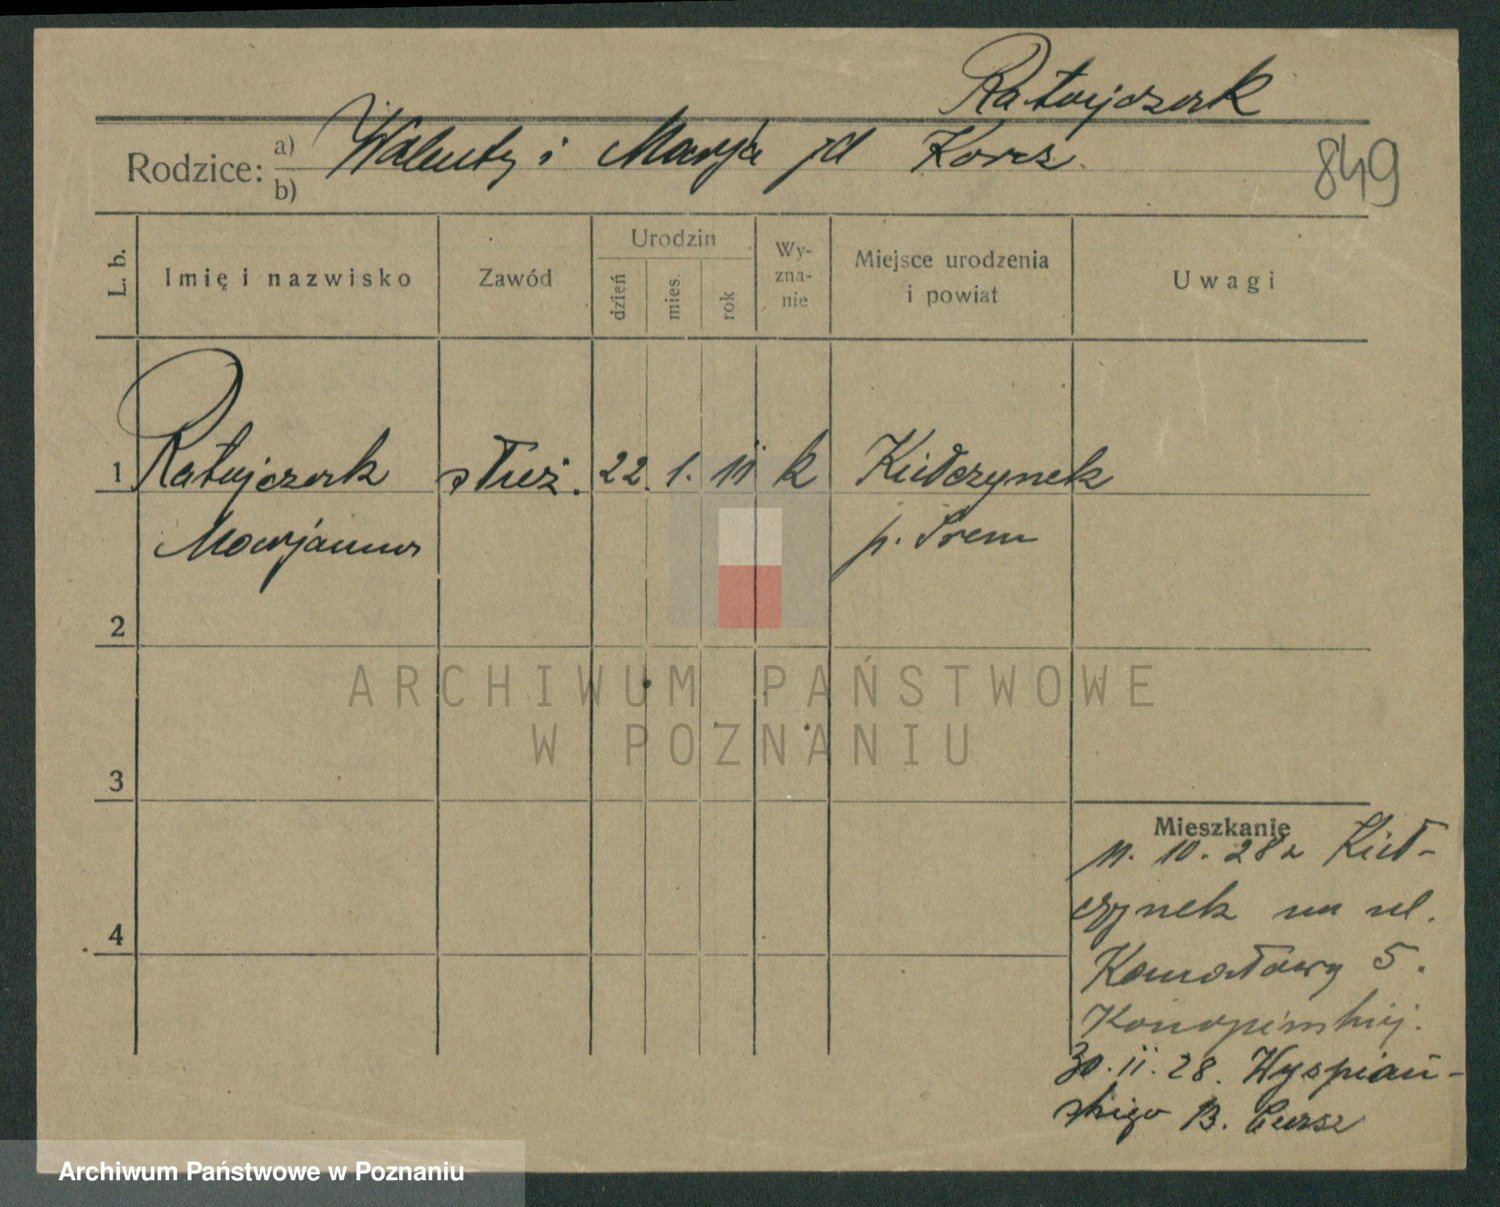 Ratajczak
Rodzice: a) Walenty i Marja zd Korcz
b)
849
L. b.
Imię i nazwisko
Zawód
Urodzin
dzień
mies.
rok
Wy-
zna-
nie
Miejsce urodzenia
i powiat
Uwagi
1 Ratajczak służ. 22. 1. 11 k Kiełczynek
Marjanna p. Śrem
2
3
4
Mieszkanie
11. 10. 28 z Kieł-
czynek na ul.
Kanałowy 5.
Konopińskiej.
30. 11. 28. Wyspiań-
skiego
ARCHIWUM PAŃSTWOWE
W POZNANIU
Archiwum Państwowe w Poznaniu